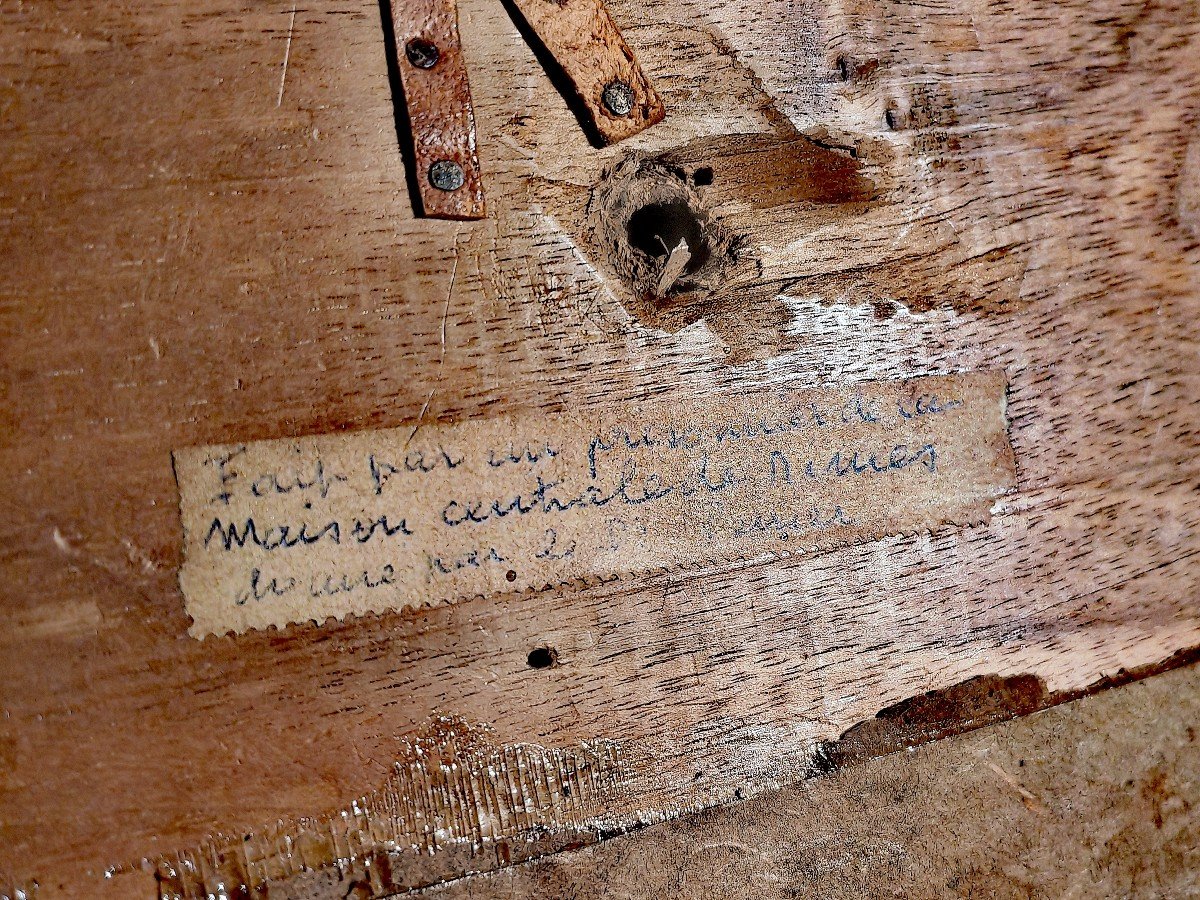 Fait par un prisonnier de la
Maison centrale de Nimes
donné par le